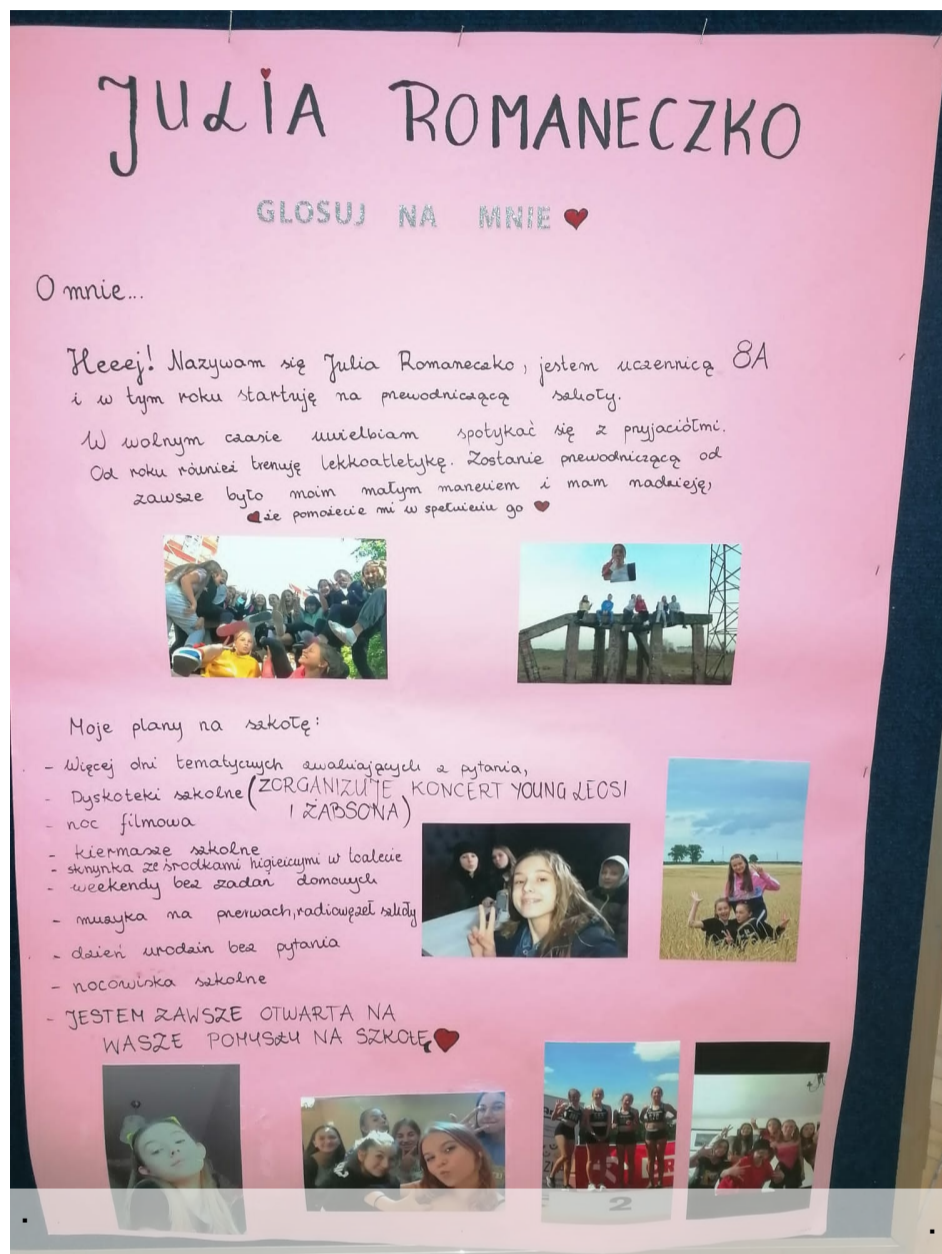 JULIA ROMANECZKO
GLOSUJ NA MNIE
O mnie...
Heeej! Nazywam się Julia Romaneczko, jestem uczennicą 8A
i w tym roku startuję na przewodniczącą szkoły.
W wolnym czasie uwielbiam spotykać się z przyjaciółmi.
Od roku również trenuję lekkoatletykę. Zostanie przewodniczącą od
zawsze było moim małym marzeniem i mam nadzieję,
że pomożecie mi w spełnieniu go
Moje plany na szkołę:
- Więcej dni tematycznych zwalniających z pytania,
- Dyskoteki szkolne (ZORGANIZUJE KONCERT YOUNG LEOSI
I ŻABSONA)
- noc filmowa
- kiermasze szkolne
- skrzynka ze środkami higienicznymi w toalecie
- weekendy bez zadań domowych
- muzyka na przerwach, radiowęzeł szkoły
- dzień urodzin bez pytania
- nocowiska szkolne
- JESTEM ZAWSZE OTWARTA NA
WASZE POMYSŁY NA SZKOŁĘ
2